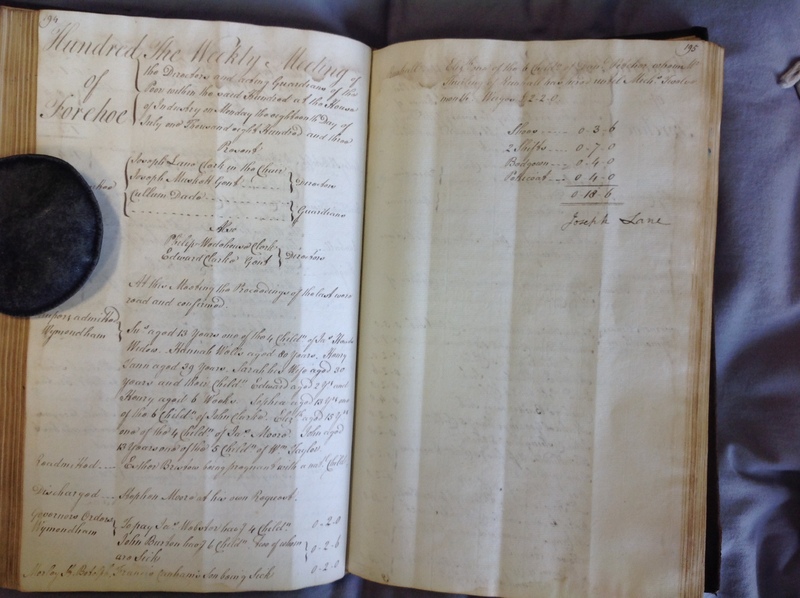 194
Hundred
of
Forehoe
The Weekly Meeting of
the Directors and acting Guardians of the
Poor within the said Hundred at the House
of Industry on Monday the eighteenth Day of
July one Thousand eight Hundred and three
Present
Joseph Lane Clerk in the Chair
Joseph Gent
Cullum Dado
Directors
Guardians
Also
Philip Wodehouse Clerk
Edward Clarke Gent
Directors
At this Meeting the Proceedings of the last were
read and confirmed
admitted
Wymondham
Jnº aged 13 Years one of the 4 Childn of Jnº
Widow. Hannah Wells aged 80 Years. Henry
aged 39 Years, Sarah his Wife aged 30
years and their Childn Edward aged 2 Yrs and
Henry aged 6 Weeks. Sophia aged 13 Yrs one
of the 6 Childn of John Clarke. Elizh aged 15 Yrs
one of the 4 Childn of Jas Moore. John aged
13 Years one of the 5 Childn of Wm Taylor
Readmitted Esther being pregnant with a Child
Discharged Stephen Moore at his own Request.
Governors Orders
Wymondham
To pay Jas Webster havg 4 Childn 0-2-0
John Burton havg 6 Childn two of whom
are Sick 0-2-6
Morley St Botolph, Francis son being Sick 0-2-0
195
one of the 6 Childn of
until Michs
month Wages £2-2-0
Shoes 0-3-6
2 Shifts 0-7-0
Bedgown 0-4-0
Petticoat 0-4-0
0 18-6
Joseph Lane